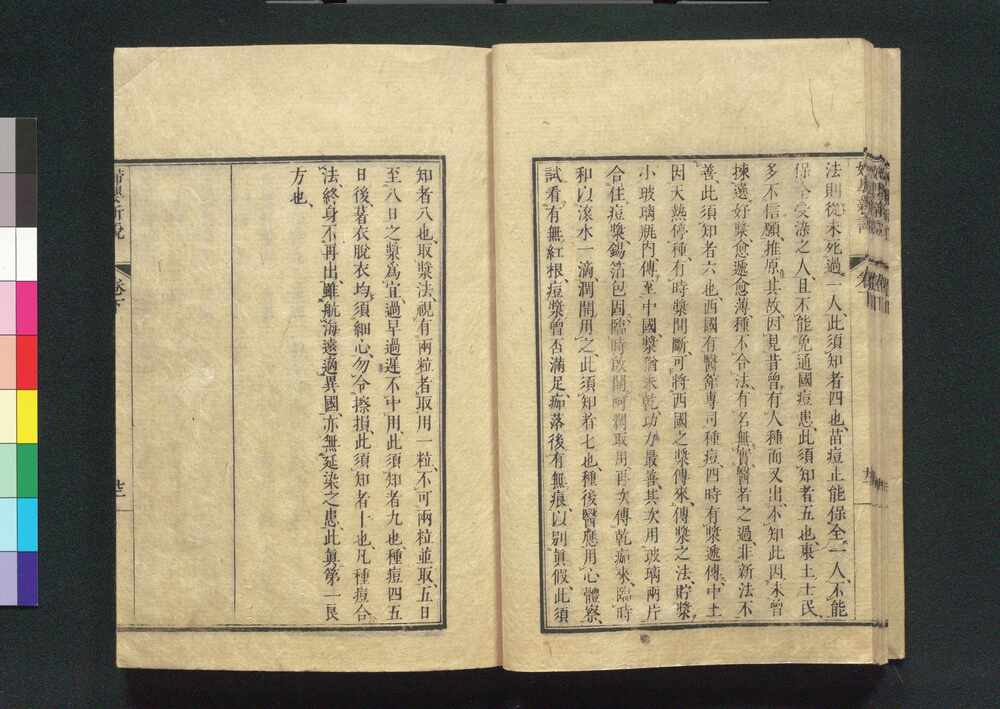 法則從未死過一人、此須知者四也、苗痘止能保全一人、不能
保全受漾之人、且不能免通國痘患、此須知者五也、東土士民、
多不信願、推原其故、因見昔曾有人種而又出、不知此因未曾
揀選好漿、愈遞愈薄、種不合法、有名無實、醫者之過、非新法不
善、此須知者六也、西國有醫館專司種痘、四時有漿遞傳、中土
因天熱停種、有時漿間斷、可將西國之漿傳來、傳漿之法、貯漿
小玻璃瓶內、傳至中國、漿猶未乾、功力最善、其次用玻璃兩片
合住痘漿、錫箔包固、臨時啟開呵潤取用、再次傳乾痂來、臨時
和以滾水一滴潤開用之、此須知者七也、種後醫應用心體察、
試看有無紅根、痘漿曾否滿足、痂落後有無痕、以別眞假、此須
知者八也、取漿法、視有兩粒者取用一粒、不可兩粒並取、五日
至八日之漿爲宜、過早過遲不中用、此須知者九也、種痘四五
日後、着衣脫衣均須細心、勿令擦損、此須知者十也、凡種痘合
法、終身不再出、雖航海遠適異國、亦無延染之患、此眞第一良
方也、
婦嬰新說
卷下